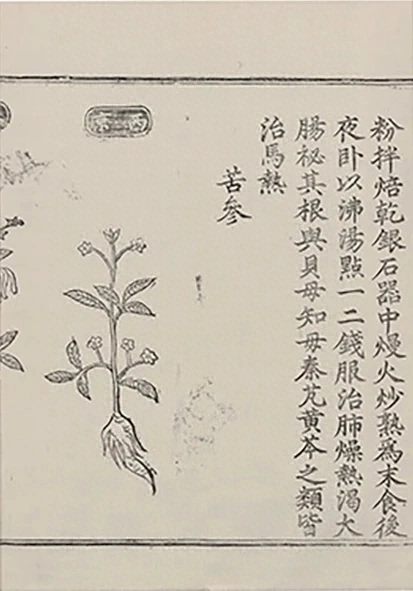 粉拌焙乾銀石器中熳火炒熟爲末食後
夜卧以沸湯點一二錢服治肺燥熱渴大
腸祕其根與貝母知母秦艽黄芩之類皆
治馬熱
苦參